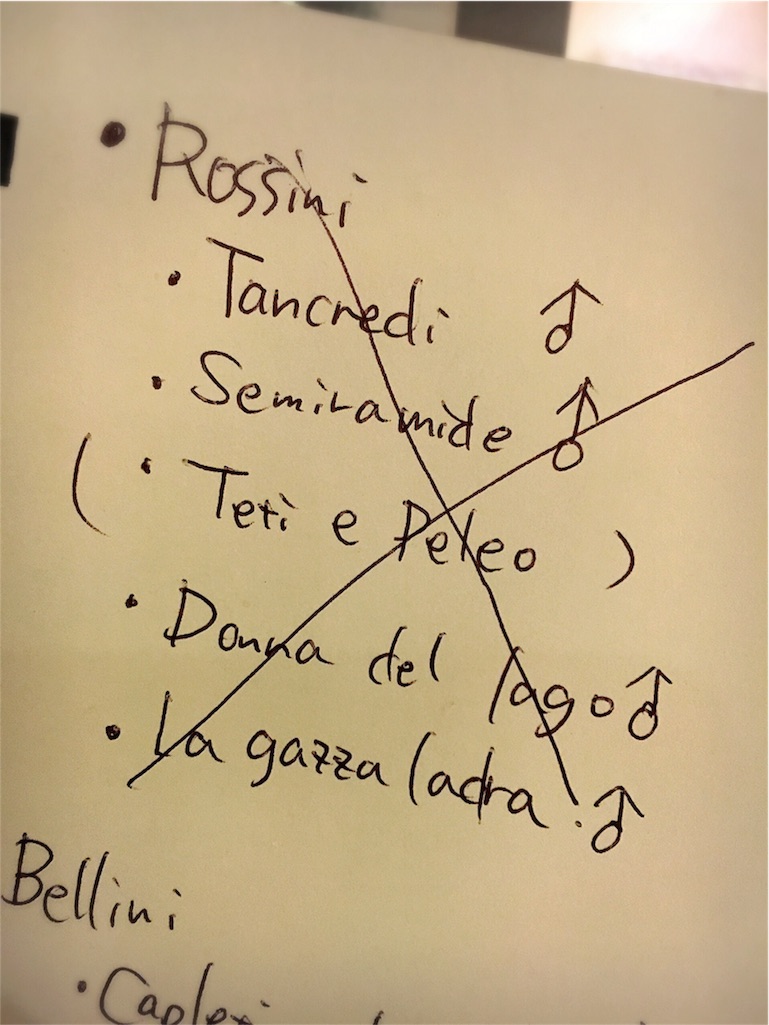 • Rossini
• Tancredi ♂
• Semiramide ♂
( • Teti e Peleo )
• Donna del lago ♂
• La gazza ladra ♂
Bellini